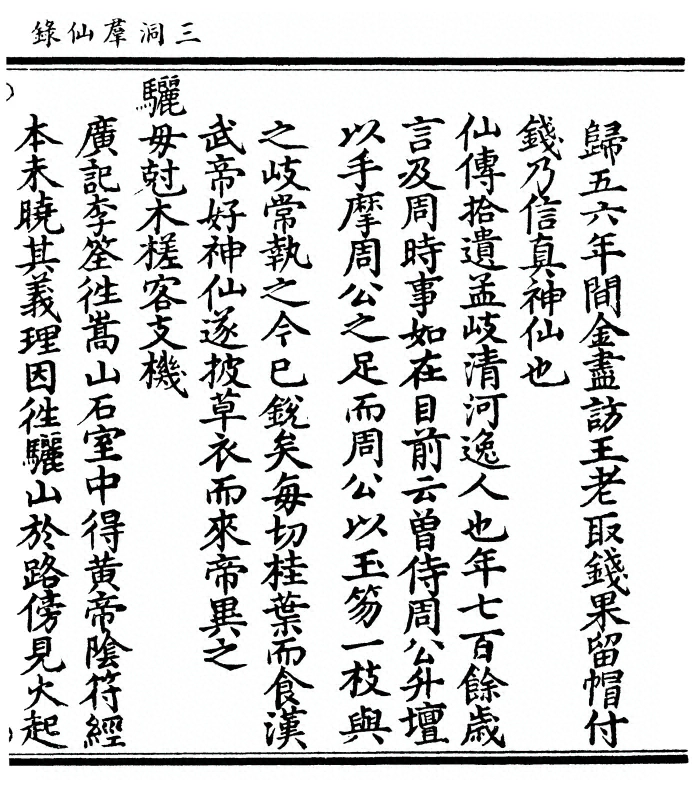 三洞羣仙錄
歸五六年間金盡訪王老取錢果留帽付
錢乃信真神仙也
仙傳拾遺孟岐清河逸人也年七百餘歲
言及周時事如在目前云曾侍周公升壇
以手摩周公之足而周公以玉笏一枝與
之岐常執之今已銳矣每切桂葉而食漢
武帝好神仙遂披草衣而來帝異之
驪母尅木槎客支機
廣記李筌徃嵩山石室中得黄帝陰符經
本未曉其義理因徃驪山於路傍見火起